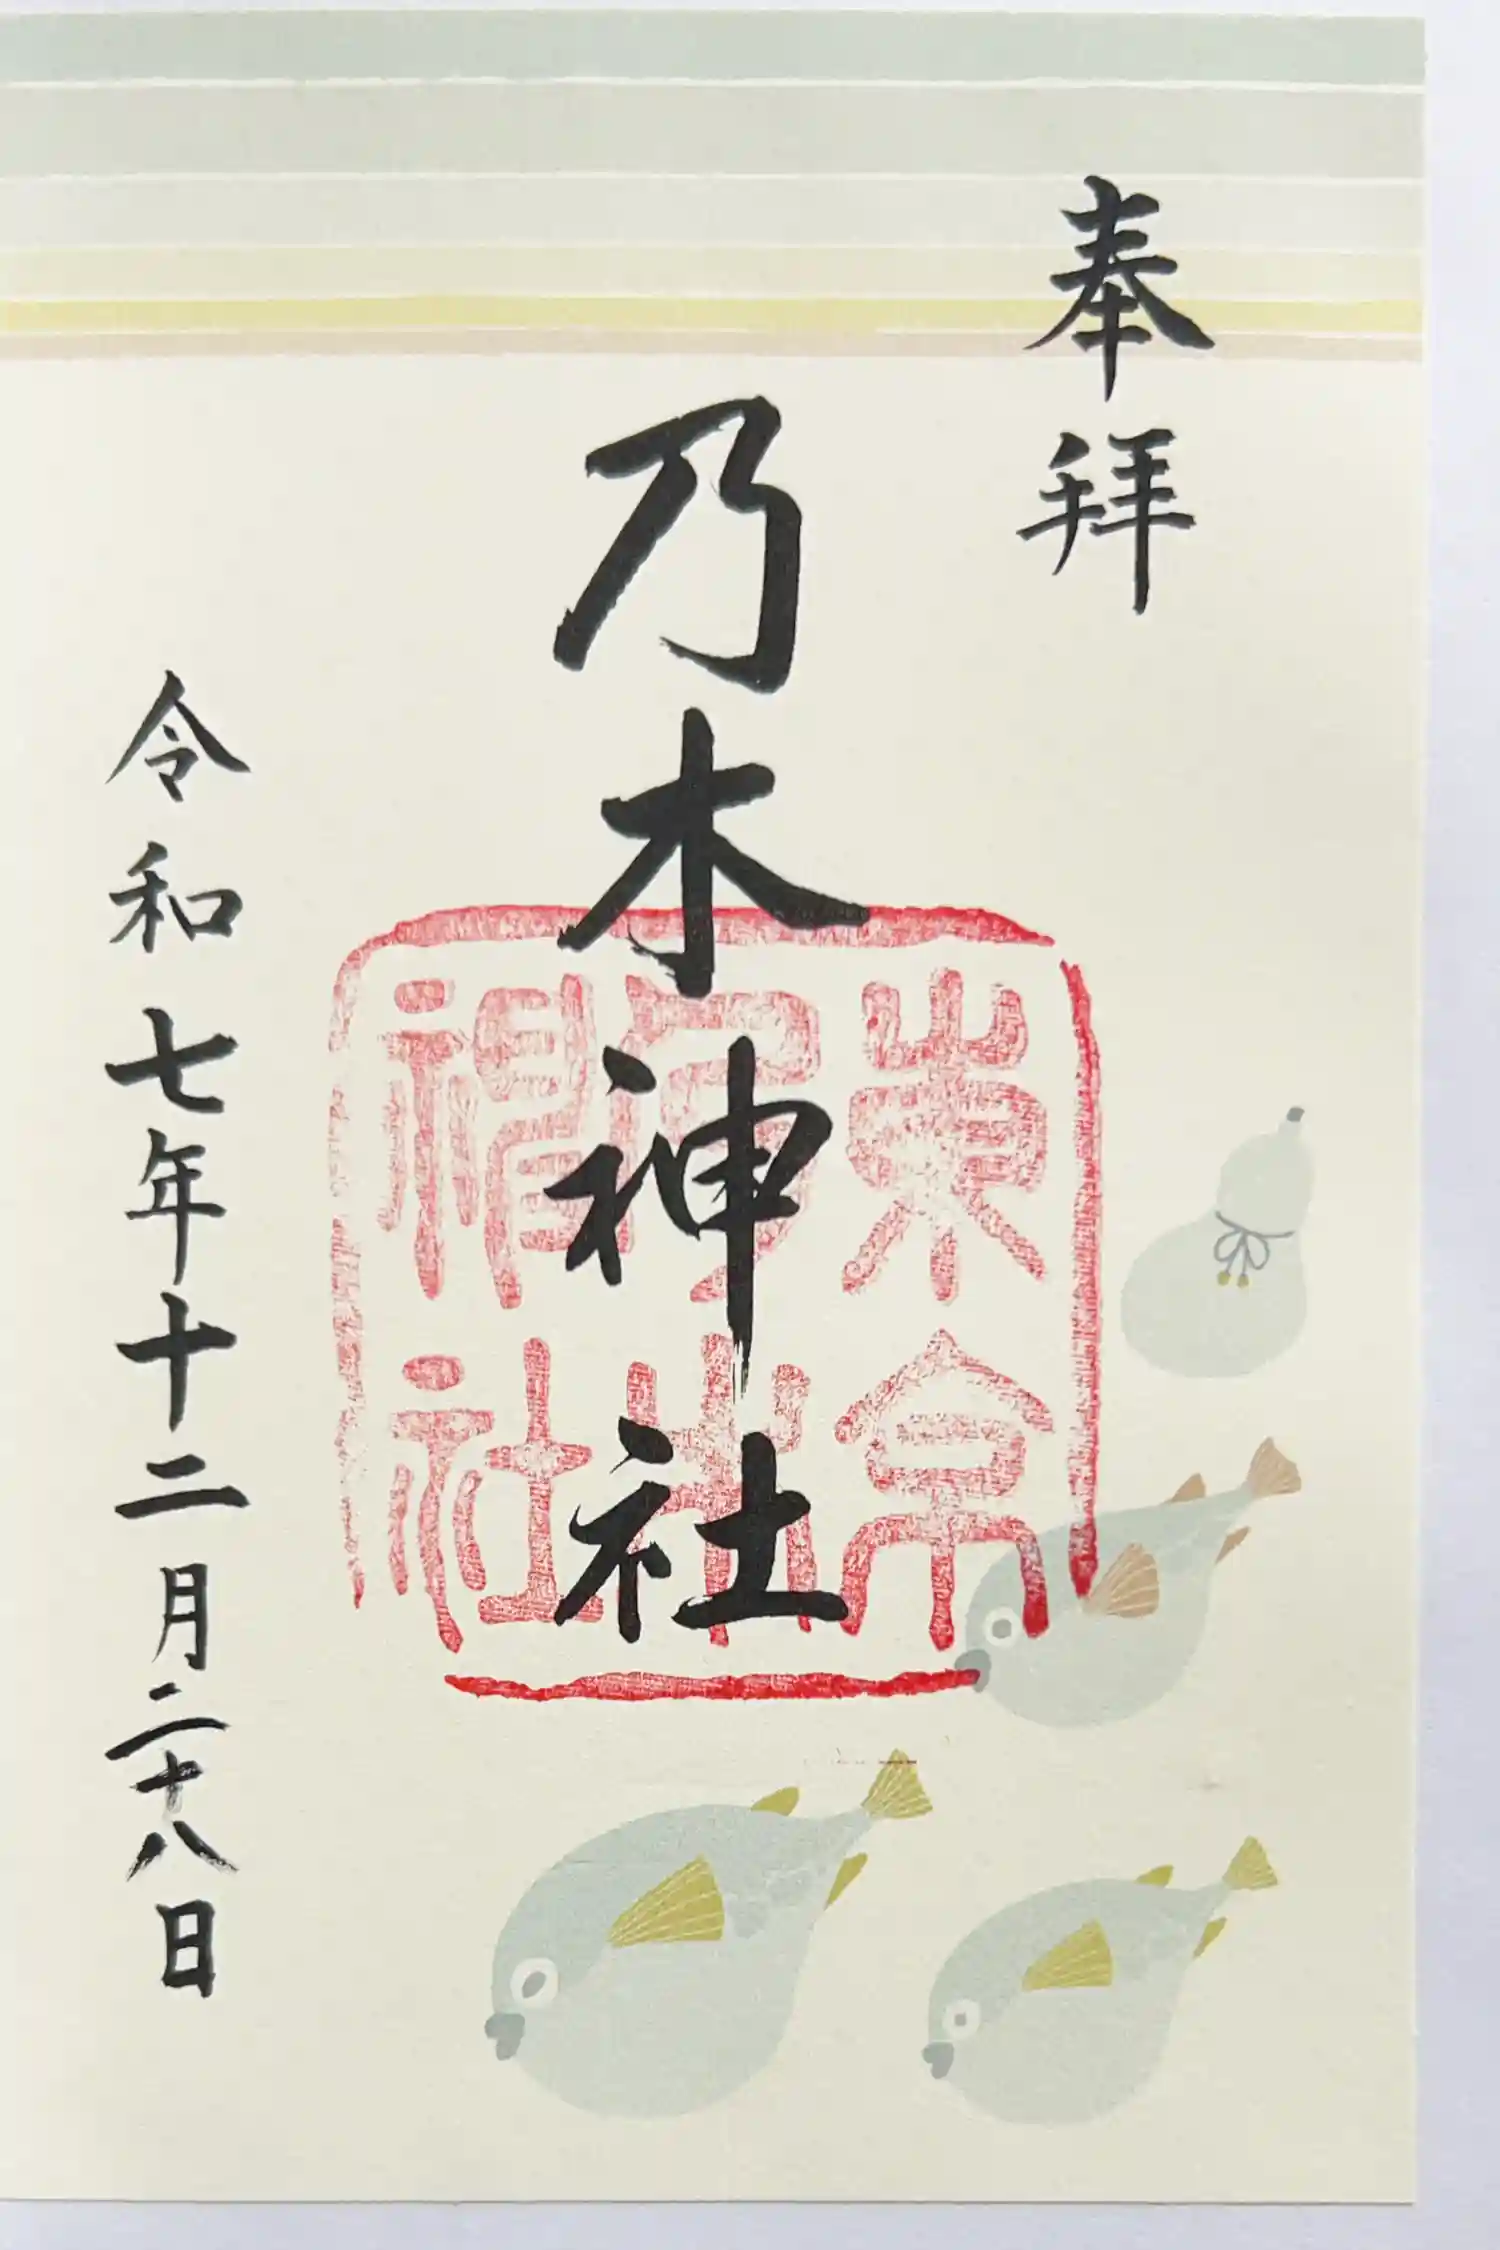 奉拝
乃木神社
令和七年十二月二十八日
東京
乃木
神社